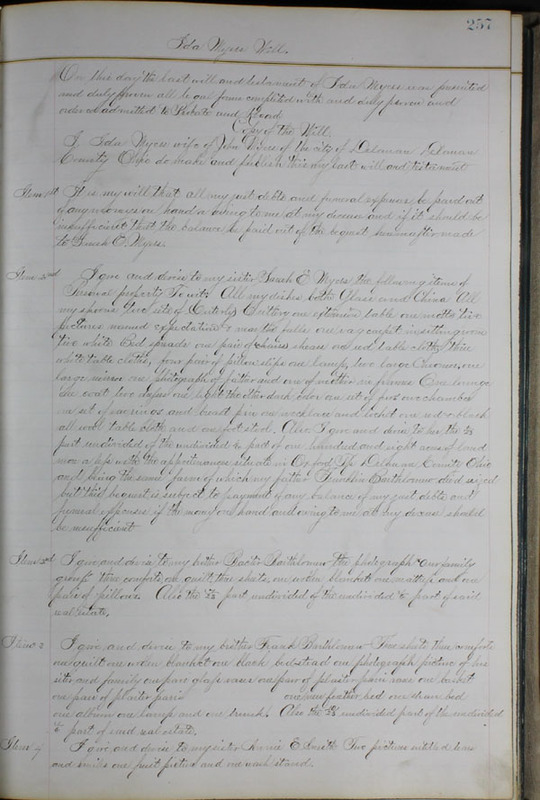 257
Ida Myers Will.
On this day the last will and testament of Ida Myers was presented
and duly proven all legal forms complied with and duly proven and
ordered admitted to Probate and Record
Copy of the Will.
I Ida Myers wife of John Myers of the city of Delaware Delaware
County Ohio do make and publish this my last will and testament
Item 1st It is my will that all my just debts and funeral expenses be paid out
of any moneys on hand or owing to me at my decease and if it should be
insufficient that the balance be paid out of the bequest hereinafter made
to Sarah E. Myers.
Item 2nd I give and devise to my sister Sarah E Myers the following items of
Personal property To wit: All my dishes both Glass and China All
my spoons two sets of Cutlery one extension table one motto two
pictures named expectation & near the falls one rag carpet
two white Bed spreads one pair of shears one red table cloth three
white table cloths, four pair of pillow slips one lamp, two large Chromos, one
large mirror one photograph of father and one of mother in frames One
coat two one light the other dark color one set of
one set of earrings and breast pin one necklace and locket one red & black
all wool table cloth and one foot stool. Also I give and devise to her the
part undivided of the undivided part of one hundred and eight acres of land
more or less with the appurtenances situate in Oxford Tp. Delaware County Ohio
and being the same farm of which my father Franklin Bartholomew died seized
but this bequest is subject to payment of any balance of my just debts and
funeral expenses if the money on hand and owing to me at my decease should
be insufficient
Item 3rd I give and devise to my brother Bartholomew the photograph of our family
group three comforts one quilt three sheets, one woolen blanket one mattress and one
pair of pillows. Also the part, undivided of the undivided part of said
real estate.
Item I give and devise to my brother Frank Bartholomew Two sheets three comforts
one quilt one woolen blanket one black bedstead one photograph picture of his
sister and family one pair glass vases one pair of plaster paris vases one basket
one pair of plaster paris one new feather bed one straw bed
one album one lamp and one trunk. Also the undivided part of the undivided
part of said real estate.
Item 4 I give and devise to my sister E. Smith Two pictures entitled tears
and smiles one fruit picture and one wash stand.